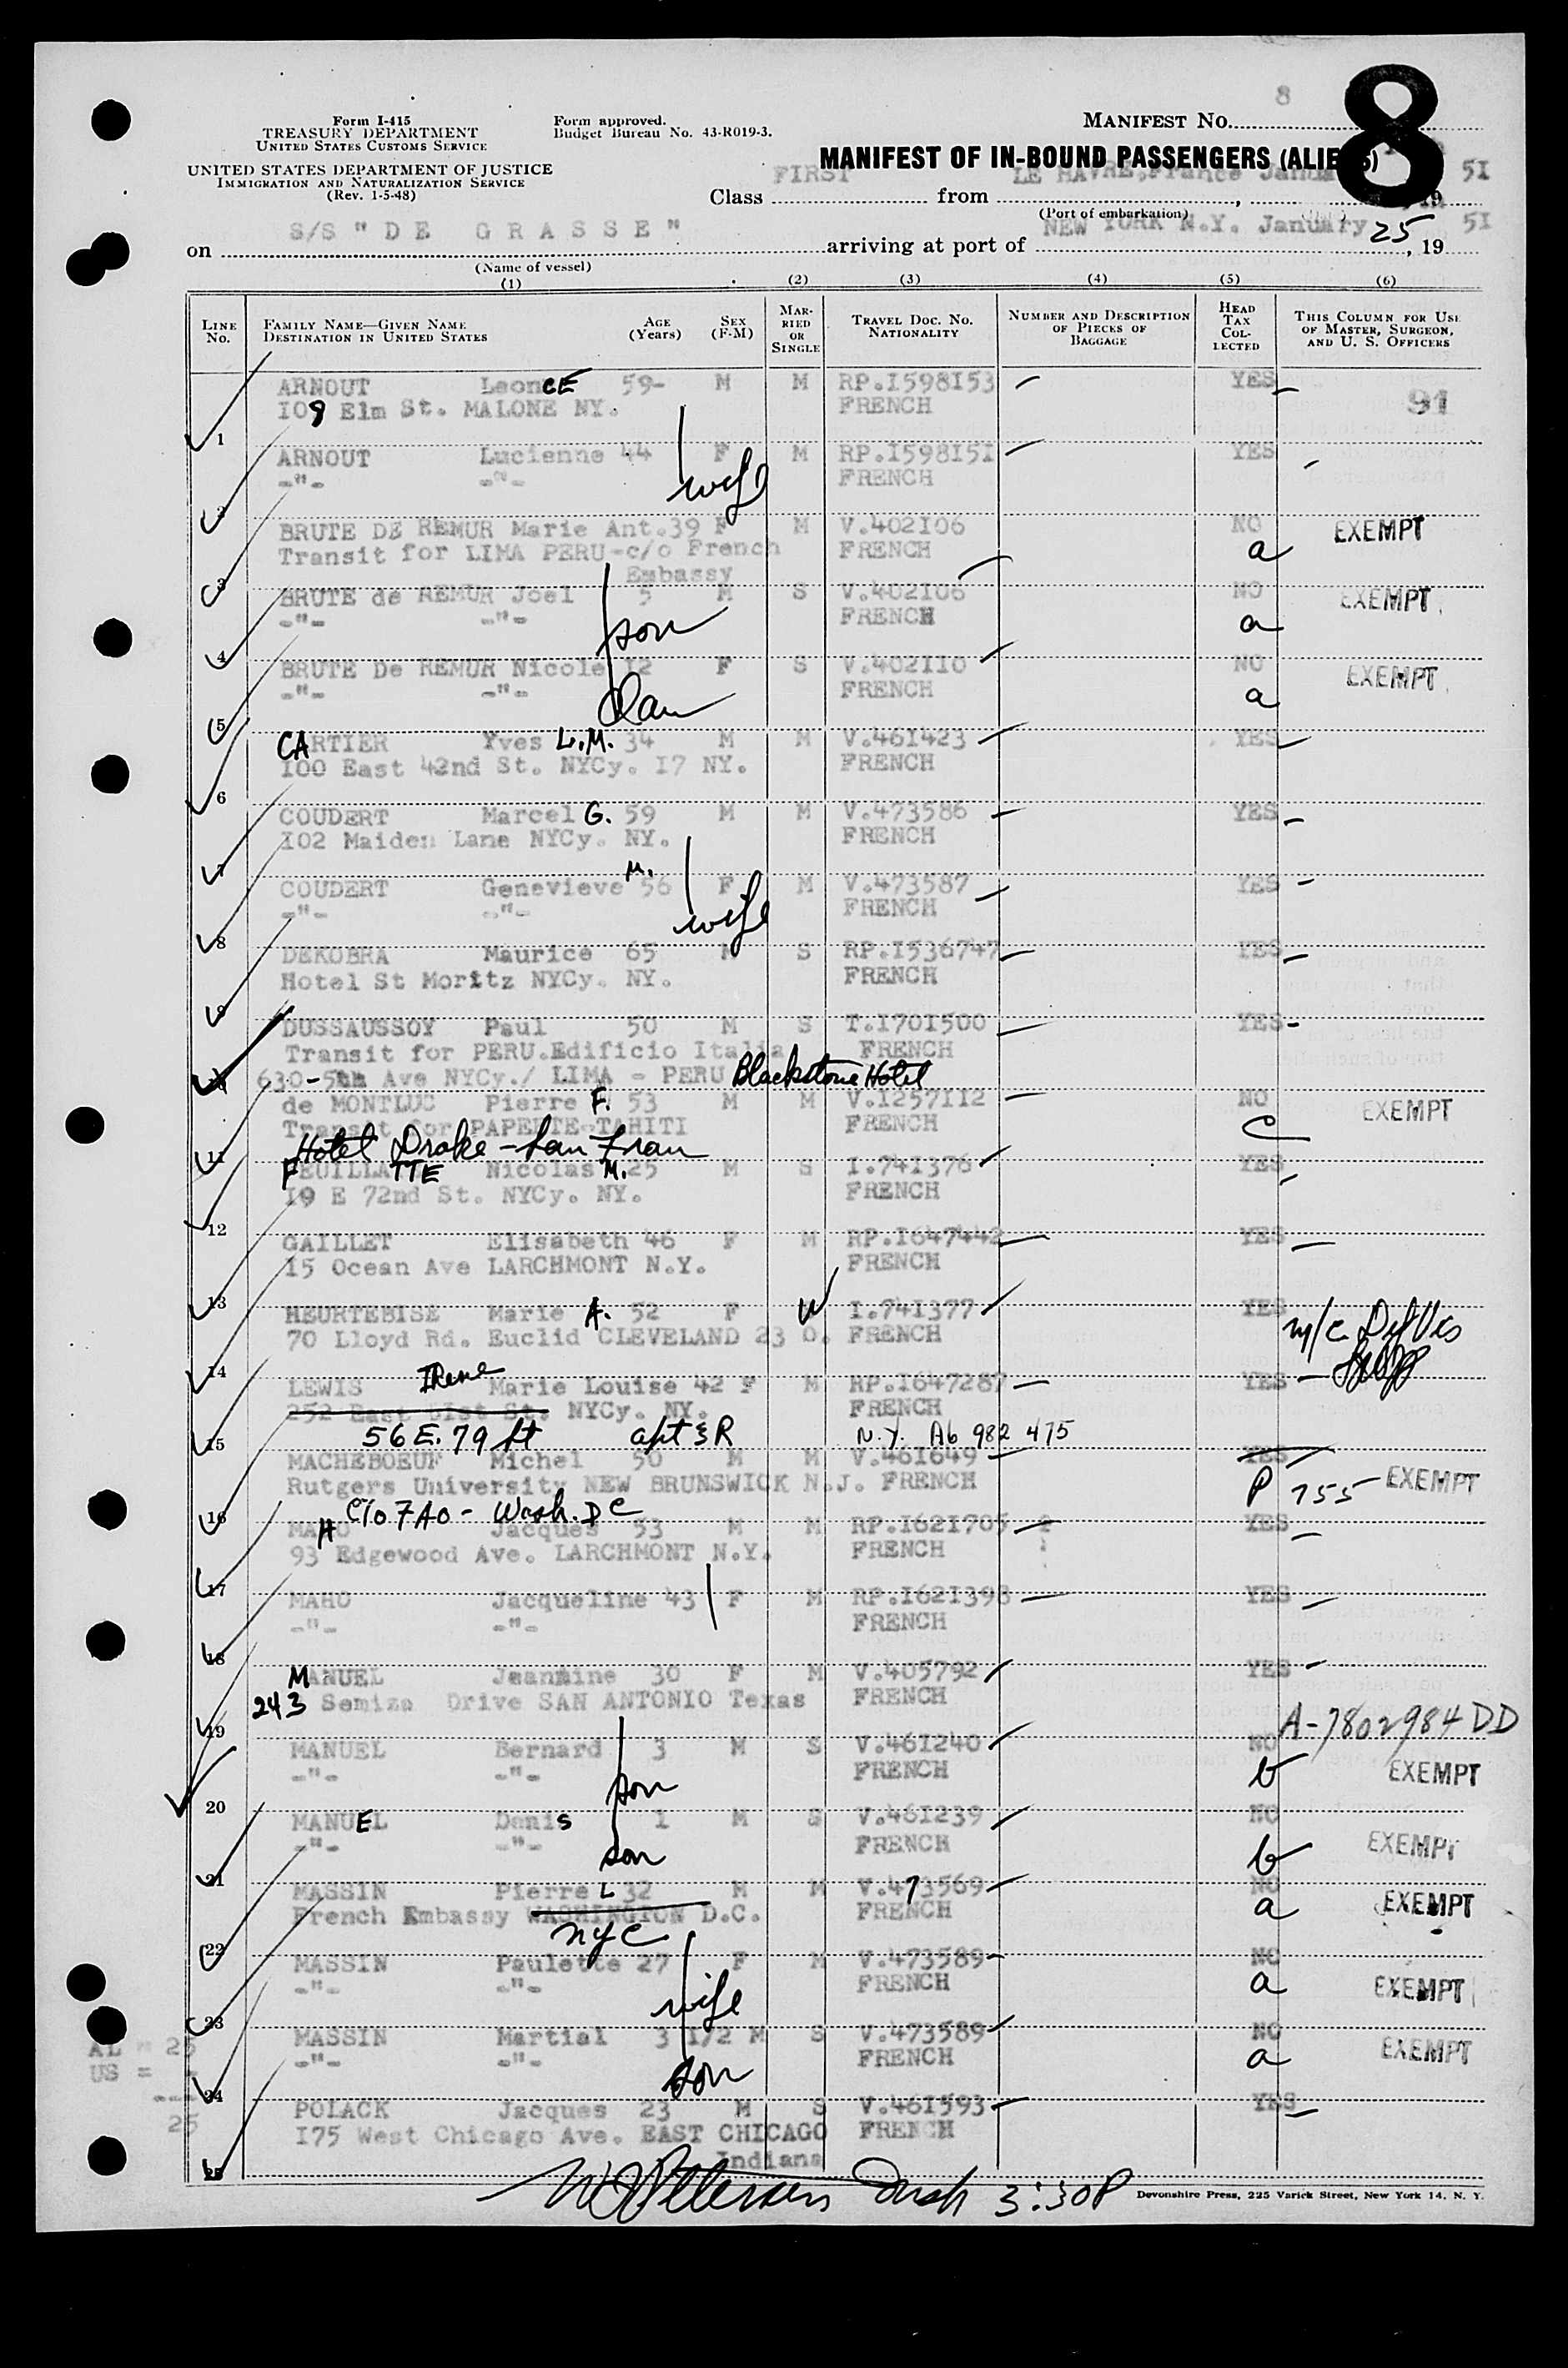 8
8
Form I-415
TREASURY DEPARTMENT
UNITED STATES CUSTOMS SERVICE
UNITED STATES DEPARTMENT OF JUSTICE
IMMIGRATION AND NATURALIZATION SERVICE
(Rev. 1-5-48)
Form approved.
Budget Bureau No. 43-R019-3.
MANIFEST NO.
MANIFEST OF IN-BOUND PASSENGERS (ALIENS)
Class FIRST from LE HAVRE, France 51
(Port of embarkation)
on S/S "DE GRASSE" arriving at port of NEW YORK N.Y. January 25, 19 51
(Name of vessel)
(1) (2) (3) (4) (5) (6)
LINE No. FAMILY NAME—GIVEN NAME DESTINATION IN UNITED STATES AGE (Years) SEX (F-M) MARRIED OR SINGLE TRAVEL DOC. NO. NATIONALITY NUMBER AND DESCRIPTION OF PIECES OF BAGGAGE HEAD TAX COLLECTED THIS COLUMN FOR USE OF MASTER, SURGEON, AND U. S. OFFICERS
ARNOUT LeonCE 59- M M RP.I598I53 YES
1 I09 Elm St. MALONE NY. FRENCH 91
ARNOUT Lucienne 44 F M RP.I598I5I YES
2 -"- -"- wife FRENCH
BRUTE DE REMUR Marie Ant.39 F M V.402I06 NO EXEMPT
Transit for LIMA PERU-c/o French FRENCH a
3 Embassy
BRUTE de REMUR Joel 5 M S V.402I06 NO EXEMPT
4 -"- -"- son FRENCH a
BRUTE De REMUR Nicole I2 F S V.402II0 NO EXEMPT
5 -"- -"- Dau FRENCH a
CARTIER Yves L.M. 34 M M V.46I423 YES
6 I00 East 42nd St. NYCy. I7 NY. FRENCH
COUDERT Marcel G. 59 M M V.473586 YES
7 I02 Maiden Lane NYCy. NY. FRENCH
COUDERT Genevieve M. 56 F M V.473587 YES
8 -"- -"- wife FRENCH
DEKOBRA Maurice 65 M S RP.I536747 YES
9 Hotel St Moritz NYCy. NY. FRENCH
DUSSAUSSOY Paul 50 M S T.I70I500 YES
Transit for PERU.Edificio Italia FRENCH
630-5th Ave NYCy./ LIMA - PERU Blackstone Hotel
de MONTLUC Pierre F. 53 M M V.I257II2 NO EXEMPT
Transit for PAPEETE-TAHITI FRENCH C
11 Hotel Drake - San Fran
FEUILLATTE Nicolas M. 25 M S I.74I376 YES
12 I9 E 72nd St. NYCy. NY. FRENCH
GAILLET Elisabeth 46 F M RP.I647442 YES
13 I5 Ocean Ave LARCHMONT N.Y. FRENCH
HEURTEBISE Marie A. 52 F W I.74I377 YES
14 70 Lloyd Rd. Euclid CLEVELAND 23 O. FRENCH
LEWIS Irene Marie Louise 42 F M RP.I647287 YES
252 East 5Ist St. NYCy. NY. FRENCH
15 56 E. 79 St apt 3R N.Y. A6 982 475
MACHEBOEUF Michel 50 M M V.46I649 YES
Rutgers University NEW BRUNSWICK N.J. FRENCH P 755 EXEMPT
16 C/o FAO - Wash. DC
MAHO Jacques 53 M M RP.I62I705 YES
17 93 Edgewood Ave. LARCHMONT N.Y. FRENCH
MAHO Jacqueline 43 F M RP.I62I398 YES
18 -"- -"- FRENCH
MANUEL Jeannine 30 F M V.405792 YES
19 243 Drive SAN ANTONIO Texas FRENCH A-7802984 DD
MANUEL Bernard 3 M S V.46I240 NO
20 -"- -"- son FRENCH b EXEMPT
MANUEL Denis 1 M S V.46I239 NO
21 -"- -"- son FRENCH b EXEMPT
MASSIN Pierre L 32 M M V.473569 NO
French Embassy WASHINGTON D.C. FRENCH a EXEMPT
22 NYC
MASSIN Paulette 27 F M V.473589 NO
23 -"- -"- wife FRENCH a EXEMPT
MASSIN Martial 3 I/2 M S V.473589 NO
24 -"- -"- son FRENCH a EXEMPT
POLACK Jacques 23 M S V.46I593 YES
I75 West Chicago Ave. EAST CHICAGO FRENCH
25 Indiana
AL = 25
US = -
---
25
3:30P
Devonshire Press, 225 Varick Street, New York 14, N. Y.